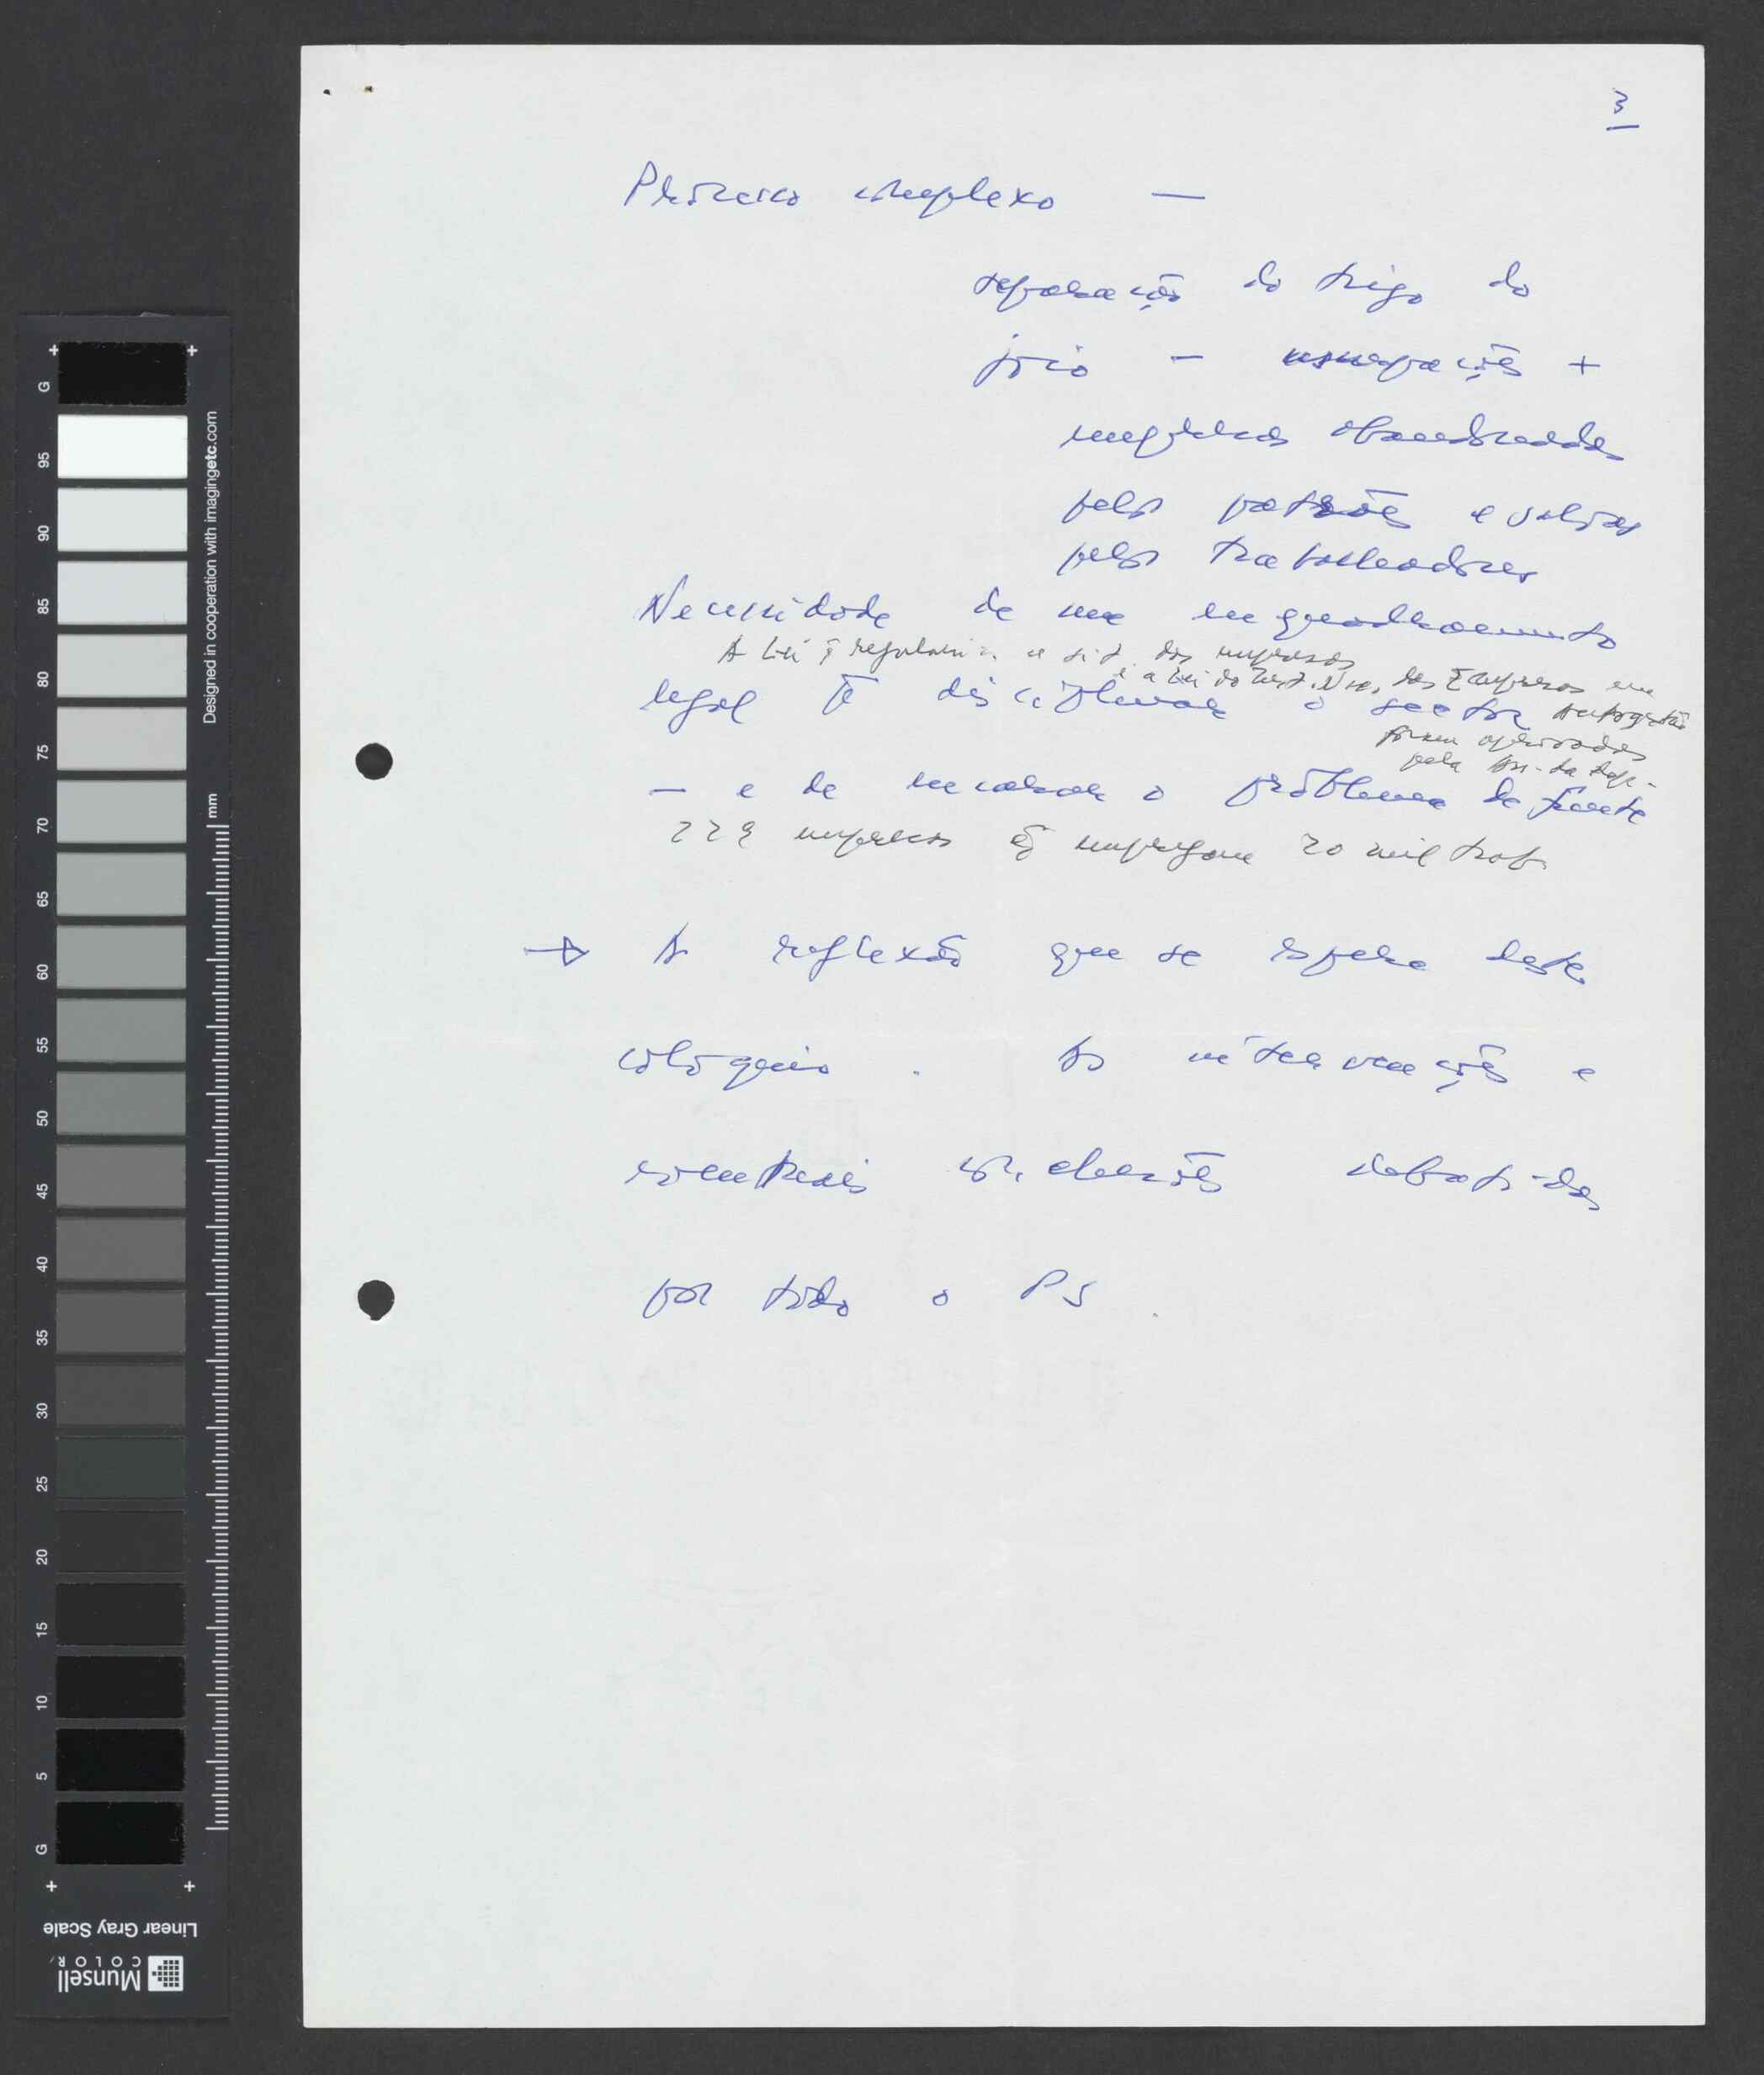 3
Processo complexo —
separação do trigo do
joio — usurpações +
empresas abandonadas
pelos patrões e salvas
pelos trabalhadores
Necessidade de um enquadramento
A Lei q regulariza a sit. das empresas
e a Lei do Inst. Nac. das Empresas em
legal p disciplinar o sector autogestão
foram aprovadas
pela Ass. da Rep.
— e de encarar o problema de frente
229 empresas q empregam 20 mil trab.
→ A reflexão que se espera deste
colóquio. As intervenções e
eventuais conclusões debatidas
por todo o PS.
G
95
90
85
80
75
70
65
60
55
50
45
40
35
30
25
20
15
10
5
G
Designed in cooperation with imagingetc.com
mm
Linear Gray Scale
Munsell
COLOR